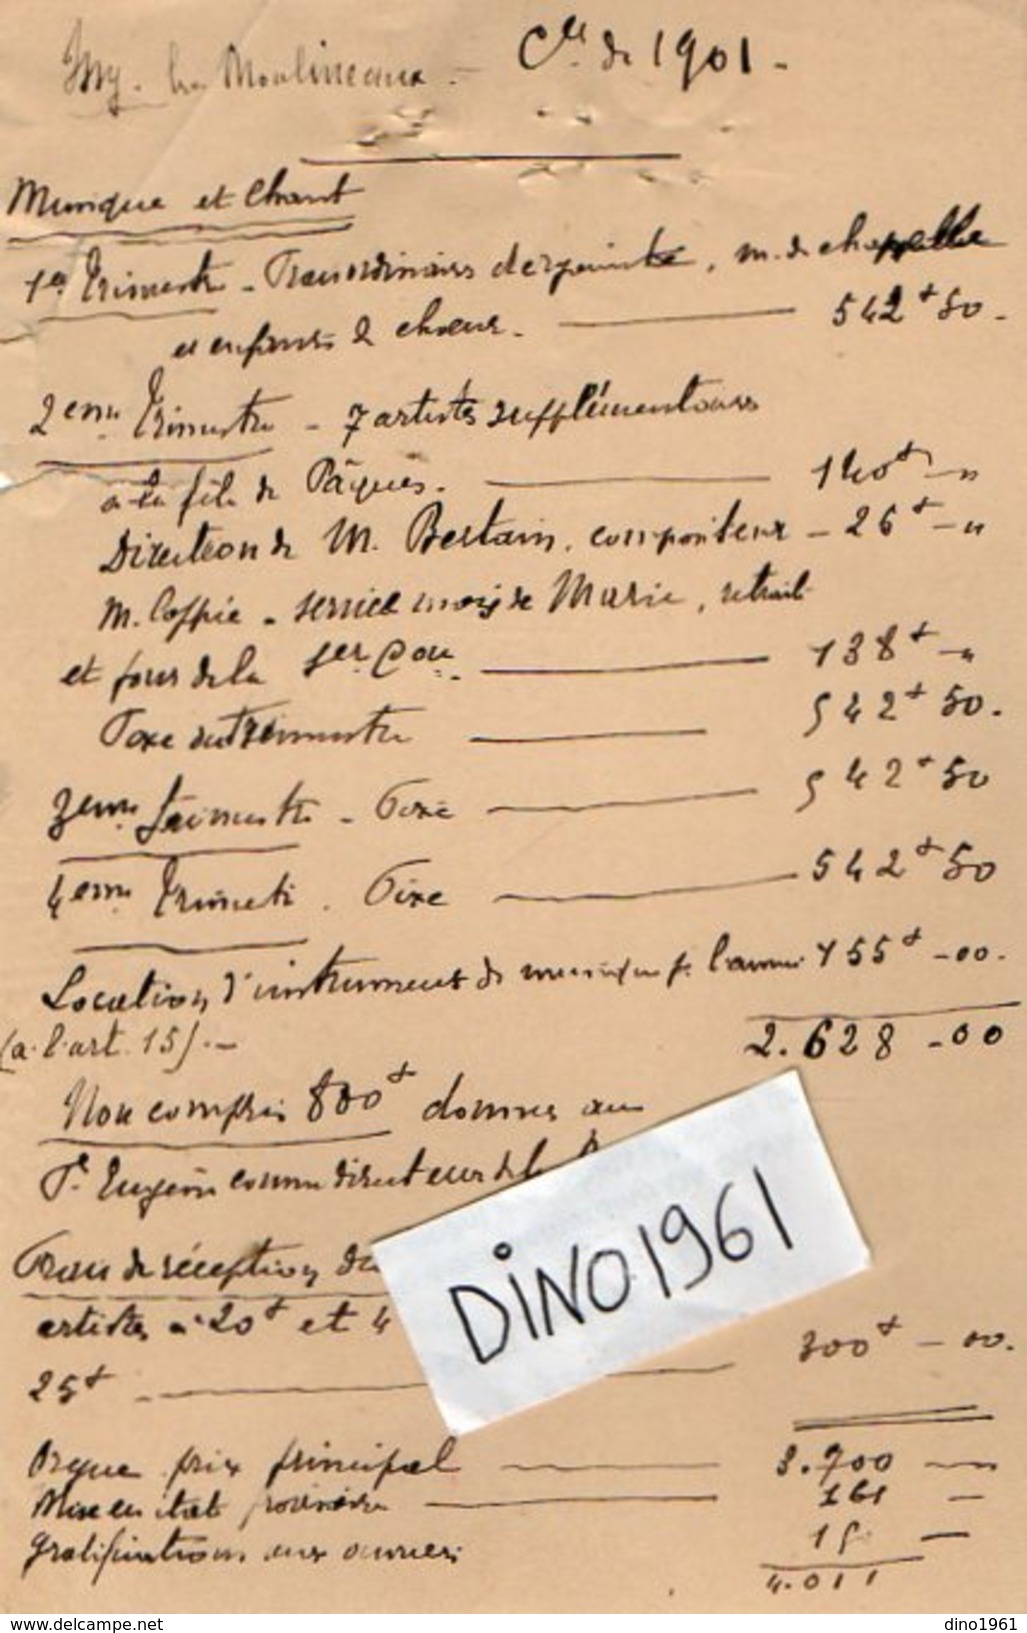 Issy. les Moulineaux. - Cte de 1901 -
Musique et Chant
1er Trimestre - m. de chapelle
et enfants de chœur. 542f 50 -
2eme Trimestre - 7 artistes supplémentaires
a la fête de Pâques. 140f - "
Direction de M. Bertain, compositeur - 26f - "
M. Coppie - service mois de Marie, retraite
et jour de la 1er Con. 138f - "
Taxe du Trimestre 542f 50 -
3eme Trimestre - Taxe 542f 50
4eme Trimestre. Taxe 542f 50
Location d'instruments de musique pr l'année 155f - 00 -
(a. l. art. 15). - 2.628 - 00
Non compris 800f donnés au
P. Eugène comme directeur de la
Frais de réception de
artistes à 20f et 4
25f 300f - 00 -
Orgue prix principal 3.700 -
Mise en état provisoire 161 -
Gratifications aux ouvriers 15 -
4.011
DINO1961
www.delcampe.net
dino1961